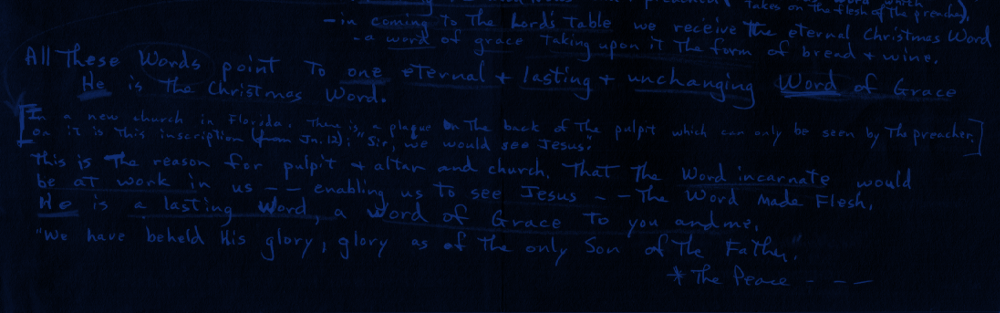 takes on the flesh of the preacher).
- in coming to the Lord's table we receive the eternal Christmas Word
- a word of grace taking upon it the form of bread + wine.
All These Words point to one eternal + lasting + unchanging Word of Grace
He is the Christmas Word.
[In a new church in Florida. There is a plaque on the back of the pulpit which can only be seen by the preacher.]
On it is this inscription (from Jn. 12): "Sir, we would see Jesus."
This is the reason for pulpit + altar and church. That the Word incarnate would
be at work in us -- enabling us to see Jesus -- The Word Made Flesh.
He is a lasting Word, a Word of Grace to you and me.
"We have beheld His glory, glory as of the only Son of the Father."
* The Peace - - -